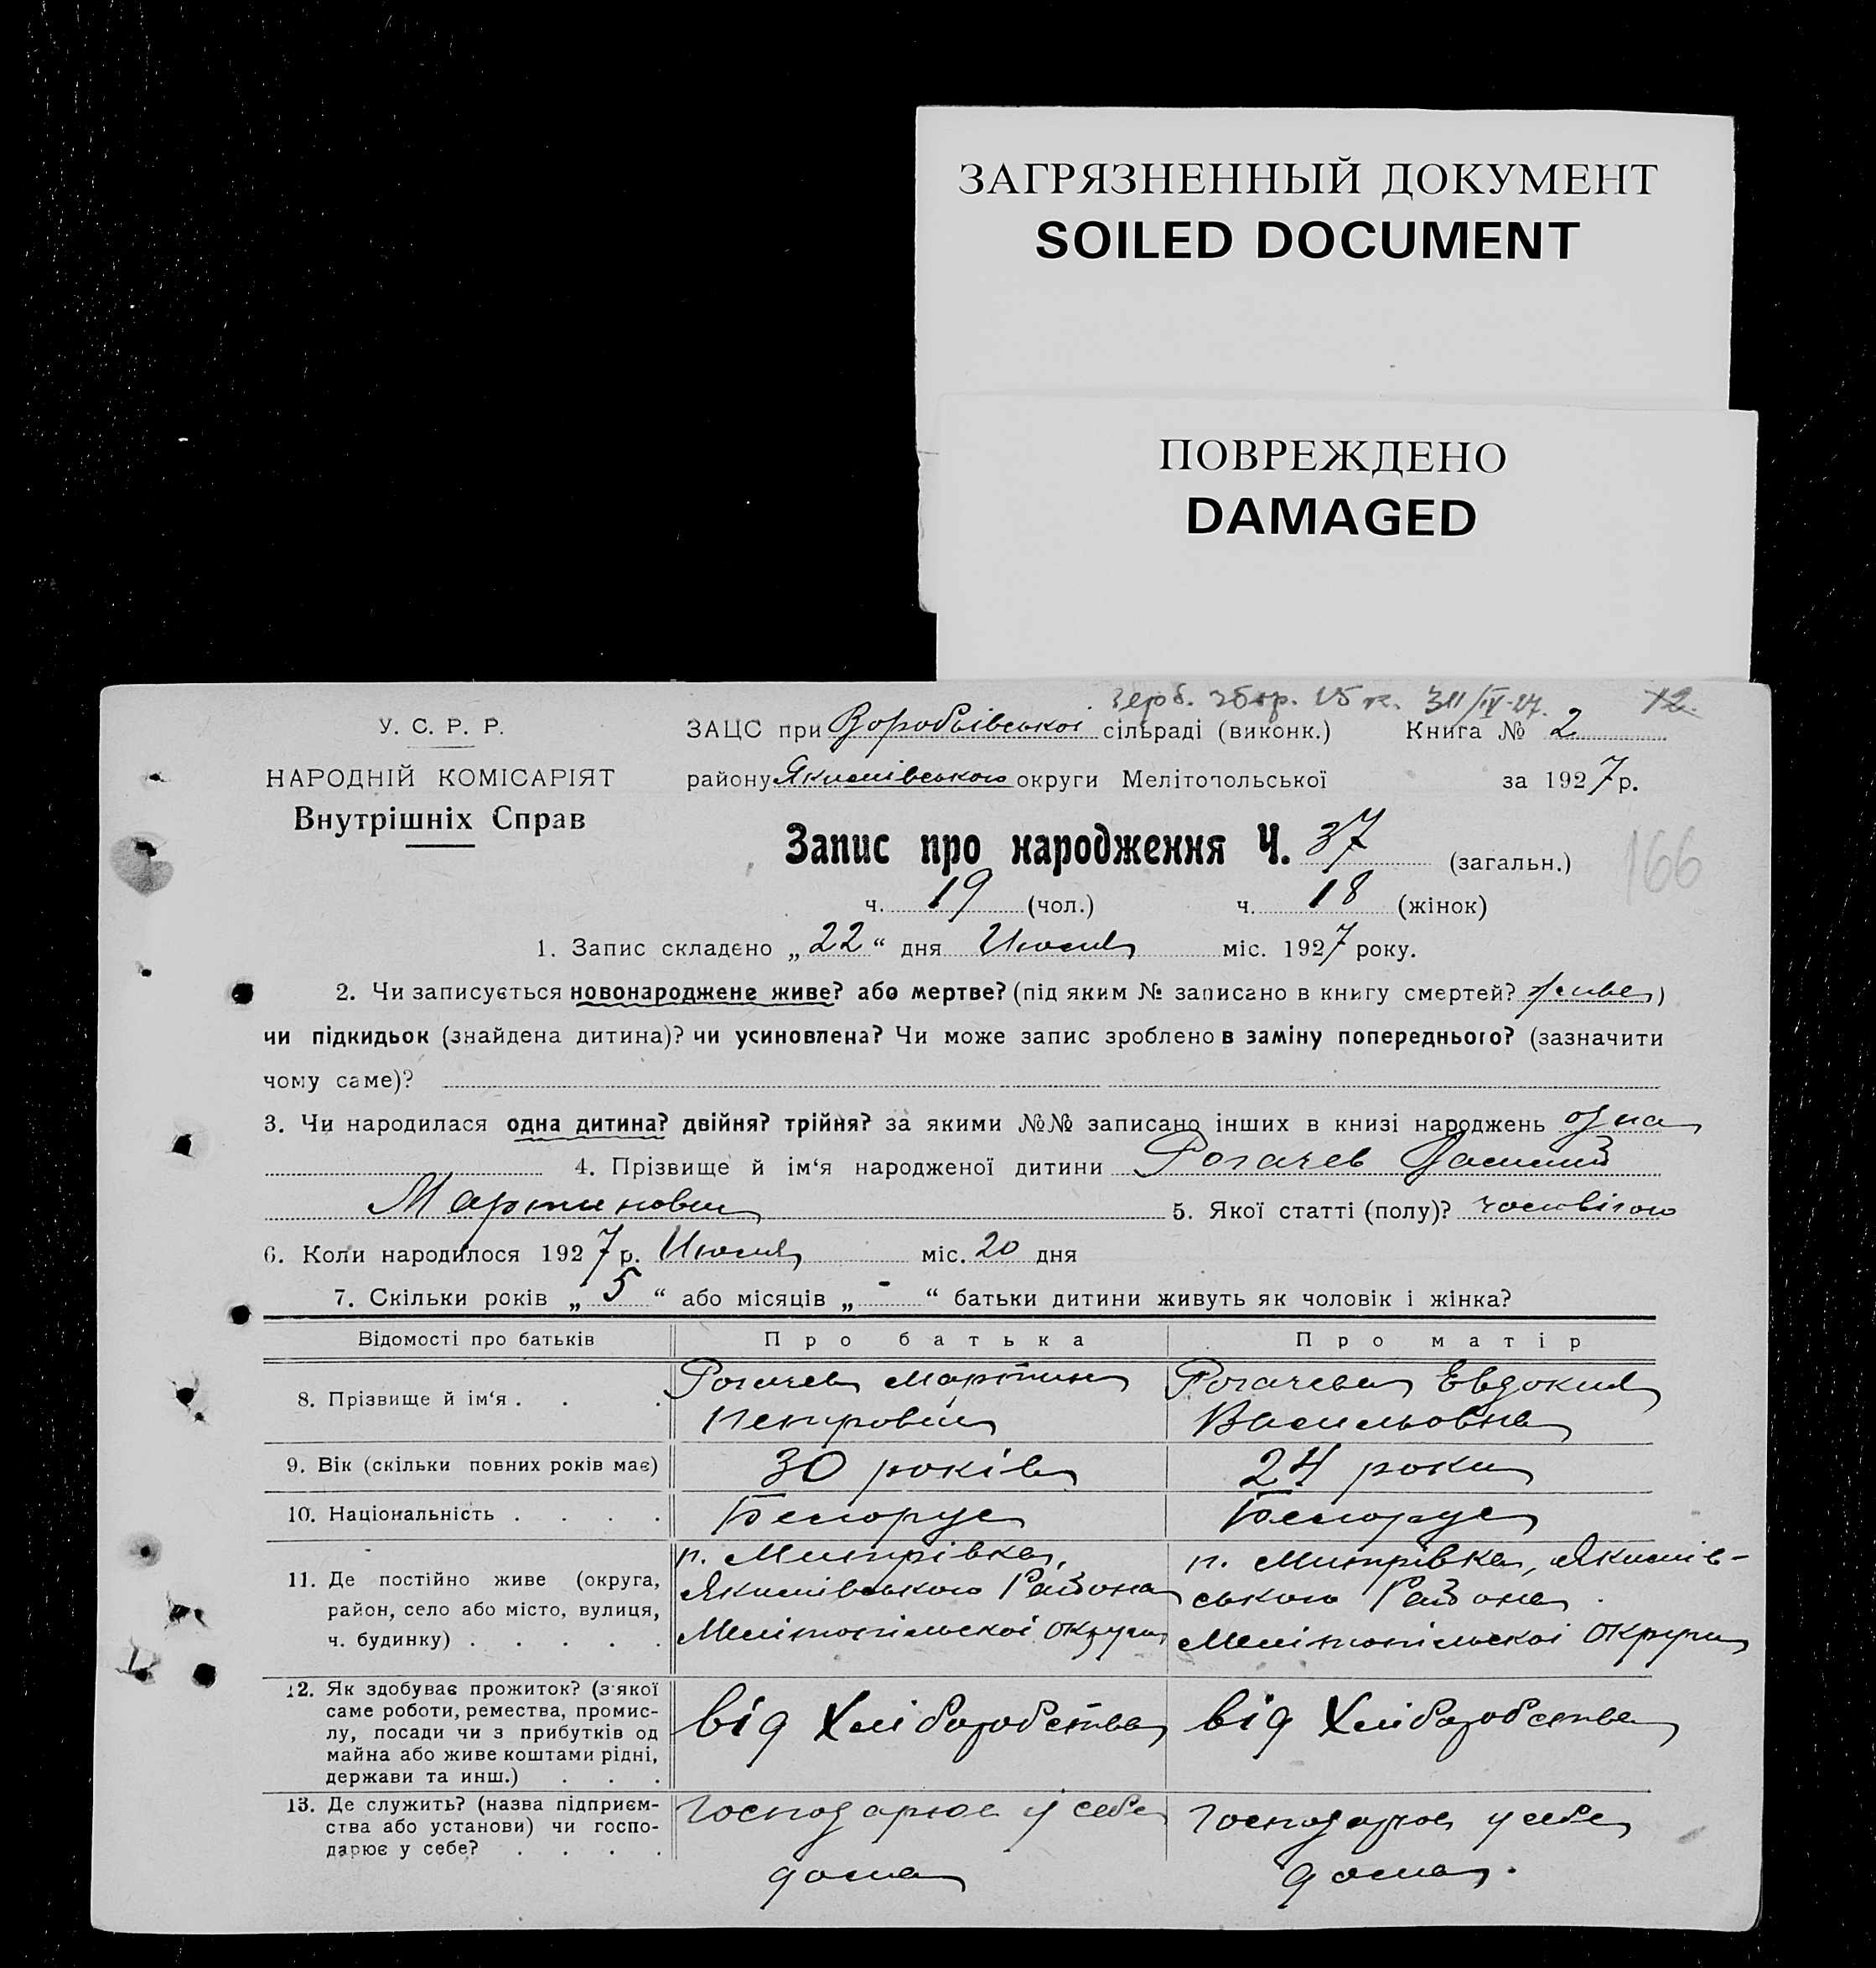 ЗАГРЯЗНЕННЫЙ ДОКУМЕНТ
SOILED DOCUMENT
ПОВРЕЖДЕНО
DAMAGED
герб. збор. 15 к. 12.
У. С. Р. Р. ЗАЦС при Воробьівськоі сільраді (виконк.) Книга № 2
НАРОДНІЙ КОМІСАРІЯТ району Якимівського округи Мелітопольської за 1927 р.
Внутрішніх Справ
Запис про народження Ч. 37 (загальн.)
166
ч. 19 (чол.) ч. 18 (жінок)
1. Запис складено „22“ дня Июля міс. 1927 року.
2. Чи записується новонароджене живе? або мертве? (під яким № записано в книгу смертей? живе)
чи підкидьок (знайдена дитина)? чи усиновлена? Чи може запис зроблено в заміну попереднього? (зазначити
чому саме)?
3. Чи народилася одна дитина? двійня? трійня? за якими №№ записано інших в книзі народжень одна
4. Прізвище й ім‘я народженої дитини Рогачев Василий
Мартинович 5. Якої статті (полу)? чоловічого
6. Коли народилося 1927 р. Июля міс. 20 дня
7. Скільки років „5“ або місяців „-“ батьки дитини живуть як чоловік і жінка?
Відомості про батьків Про батька Про матір
8. Прізвище й ім‘я . . . Рогачев Мартин Рогачева Евдокия
Петрович Васильовна
9. Вік (скільки повних років має) 30 років 24 роки
10. Національність . . . . Белорус Белорус
п. Митрівка, п. Митрівка, Якимів-
11. Де постійно живе (округа, Якимівського Района ського Района
район, село або місто, вулиця,
ч. будинку) . . . . . Мелітопільскоі Округи Мелітопільскоі Округи
12. Як здобуває прожиток? (з якої
саме роботи, ремества, промис-
лу, посади чи з прибутків од від Хліборобства від Хліборобства
майна або живе коштами рідні,
держави та инш.) . . .
13. Де служить? (назва підприєм- Господарюе у себе Господарюе у себе
ства або установи) чи госпо-
дарює у себе? . . . .
дома дома.